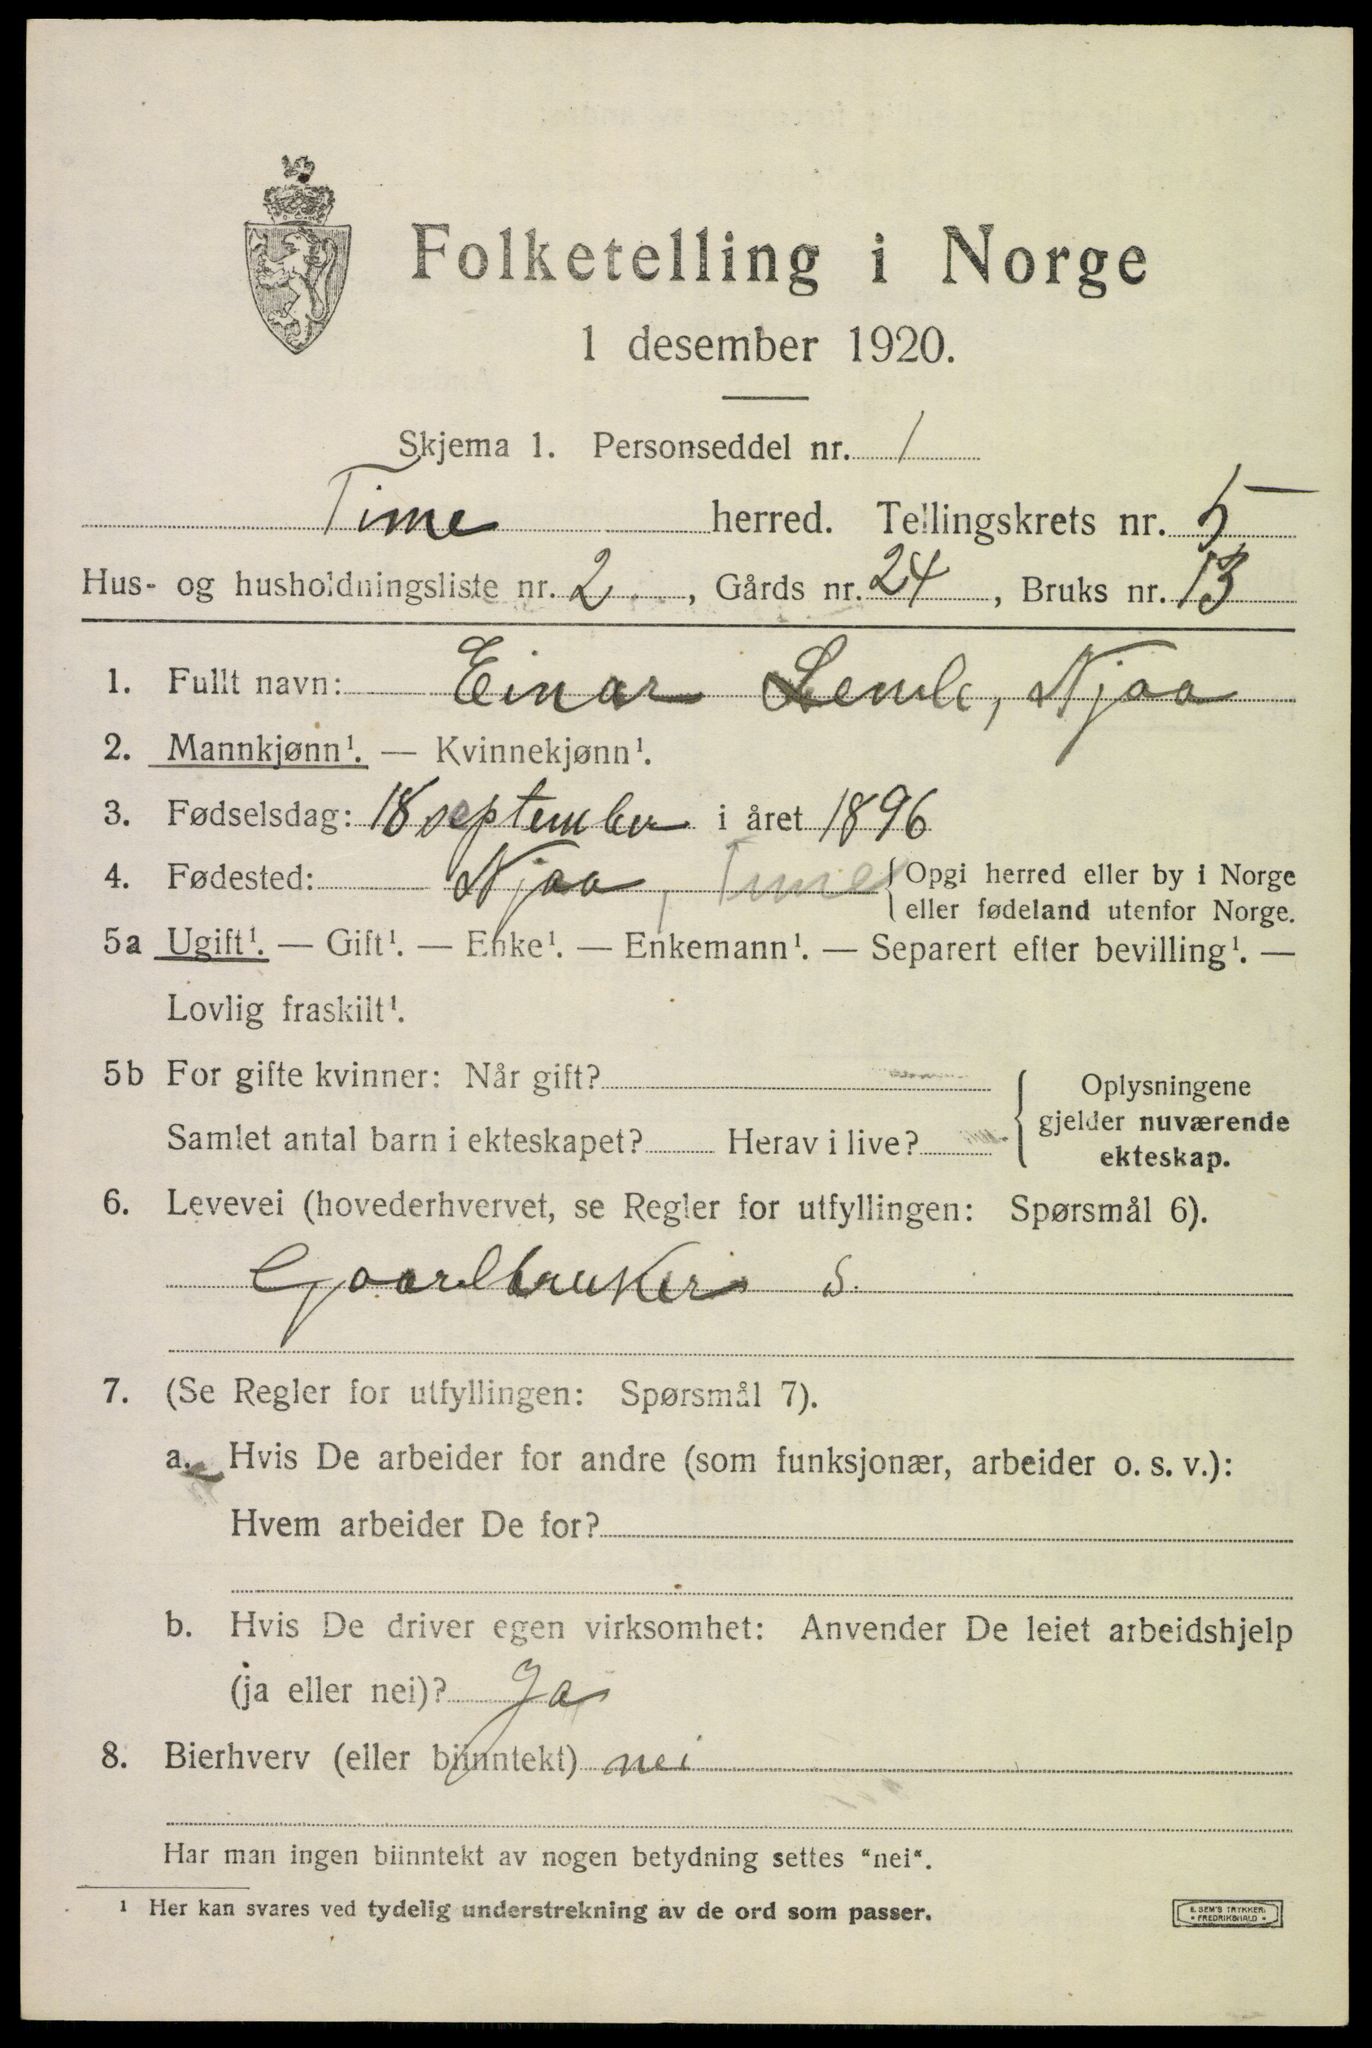 Folketelling i Norge
1 desember 1920.
Skjema 1. Personseddel nr. 1
Time herred. Tellingskrets nr. 5
Hus- og husholdningsliste nr. 2, Gårds nr. 24, Bruks nr. 13
1. Fullt navn: Einar Njaa
2. Mannkjønn¹. — Kvinnekjønn¹.
3. Fødselsdag: 18 september i året 1896
4. Fødested: Njaa, Time { Opgi herred eller by i Norge
eller fødeland utenfor Norge.
5a Ugift¹. — Gift¹. — Enke¹. — Enkemann¹. — Separert efter bevilling¹. —
Lovlig fraskilt¹.
5b For gifte kvinner: Når gift?
Samlet antal barn i ekteskapet? Herav i live?
Oplysningene
gjelder nuværende
ekteskap.
6. Levevei (hovederhvervet, se Regler for utfyllingen: Spørsmål 6).
Gaardbruker S.
7. (Se Regler for utfyllingen: Spørsmål 7).
a. Hvis De arbeider for andre (som funksjonær, arbeider o. s. v.):
Hvem arbeider De for?
b. Hvis De driver egen virksomhet: Anvender De leiet arbeidshjelp
(ja eller nei)? Ja
8. Bierhverv (eller biinntekt) nei
Har man ingen biinntekt av nogen betydning settes "nei".
¹ Her kan svares ved tydelig understrekning av de ord som passer.
E. SEM'S TRYKKERI
• FREDRIKSHALD •